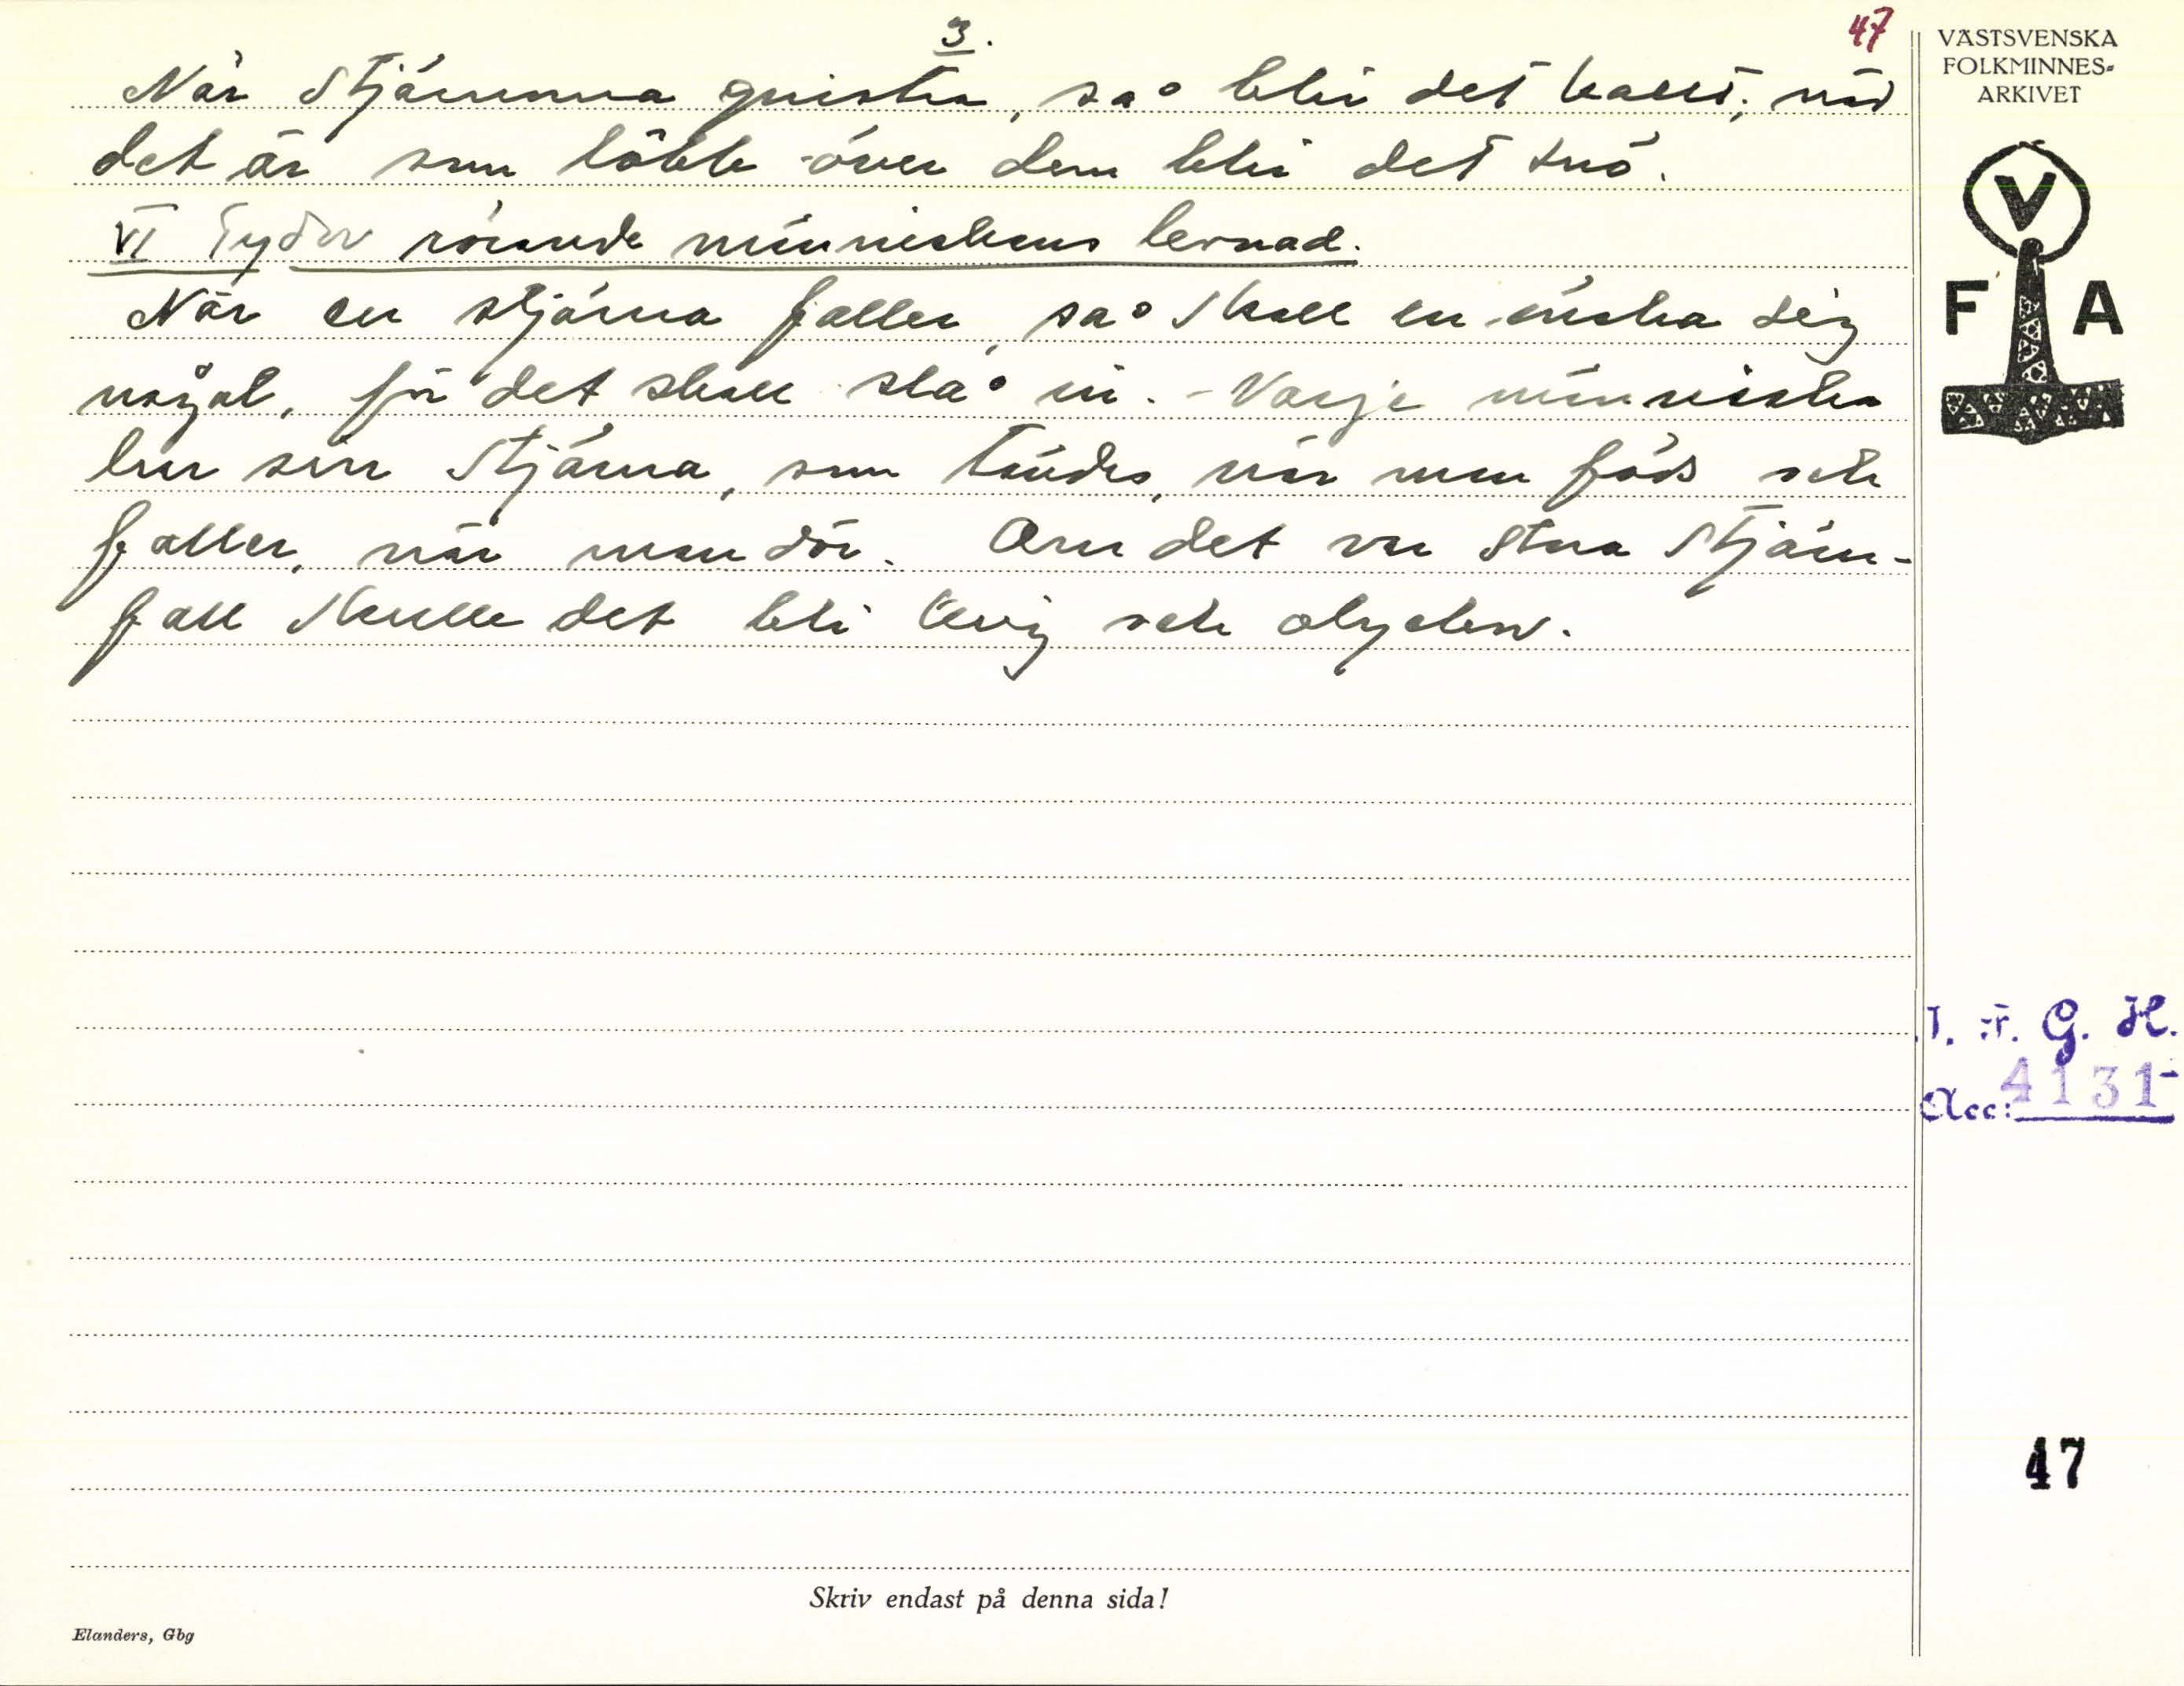 3.
47
När stjärnorna gnistra, så blir det kallt; när
det är som töcken över dem blir det snö.
VI Tydor rörande människans levnad.
När en stjärna faller, så skall en önska sig
något, för det skall slå in. - Varje människa
har sin stjärna, som tändes, när man föds och
faller, när man dör. Om det var stora stjärn-
fall skulle det bli krig och olyckor.
VÄSTSVENSKA
FOLKMINNES-
ARKIVET
V
F A
I. F. G. H.
Acc: 4131
47
Skriv endast på denna sida!
Elanders, Gbg